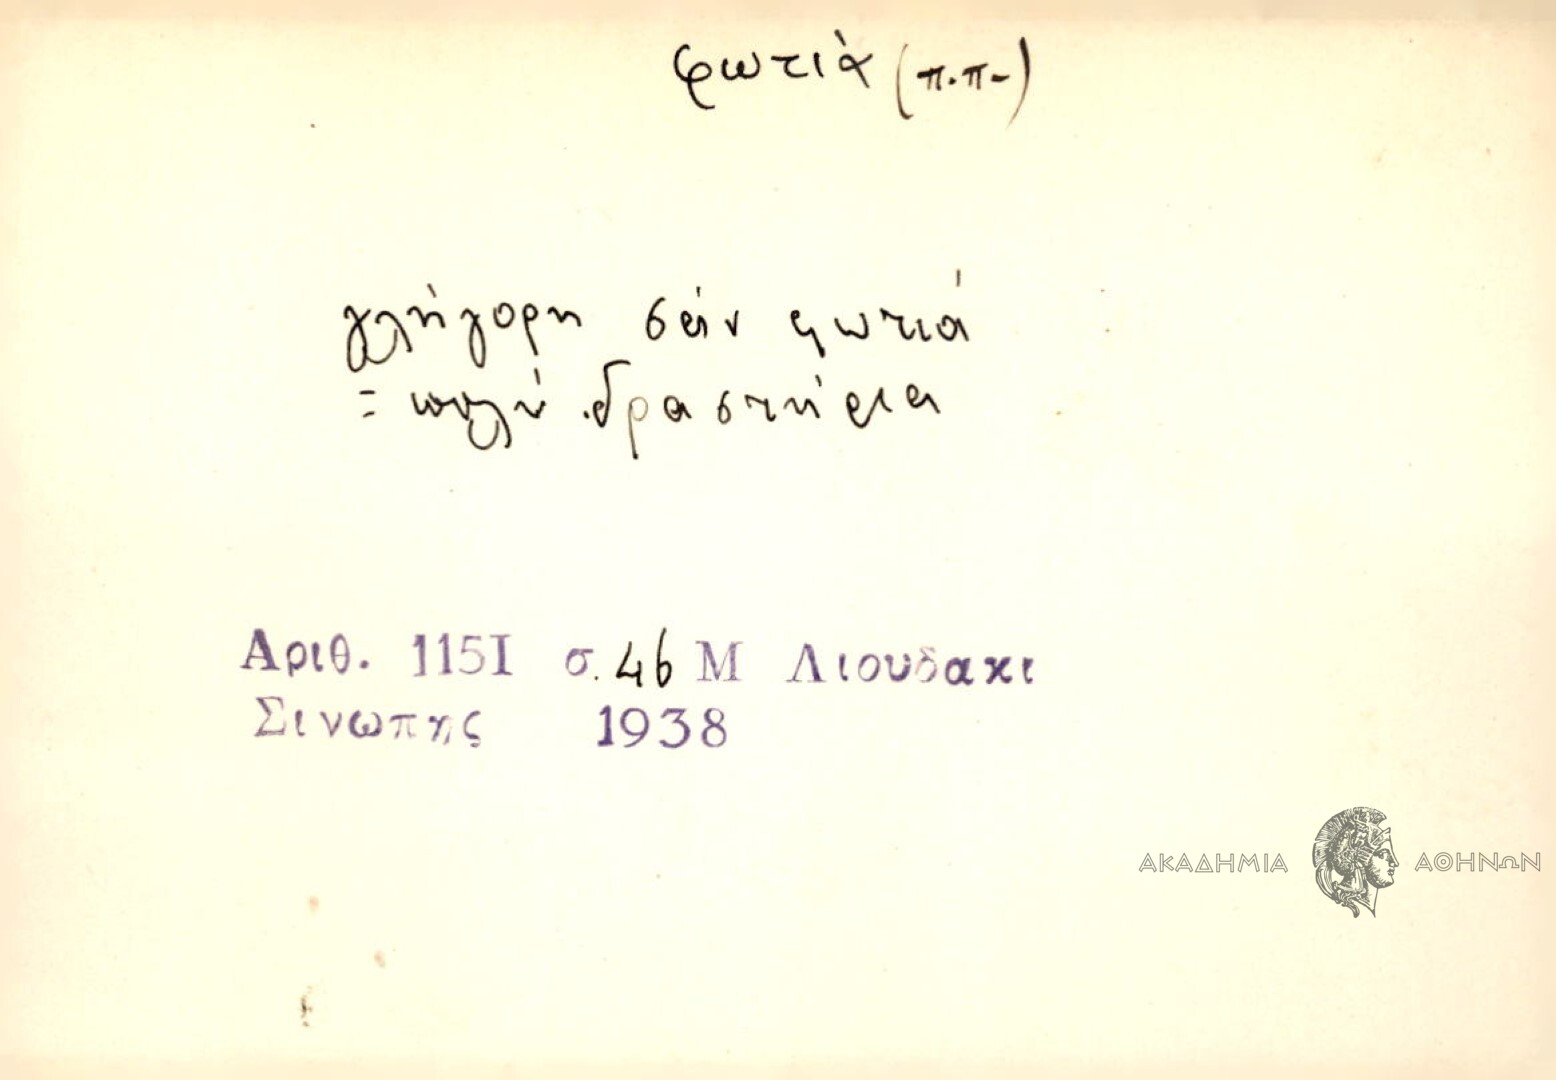 φωτιὰ (π.π-)
γλήγορη σάν φωτιά
= πολύ δραστήρια
Αριθ. 1151 σ. 46 Μ Λιουδακι
Σινωπης 1938
ΑΚΑΔΗΜΙΑ ΑΘΗΝΩΝ